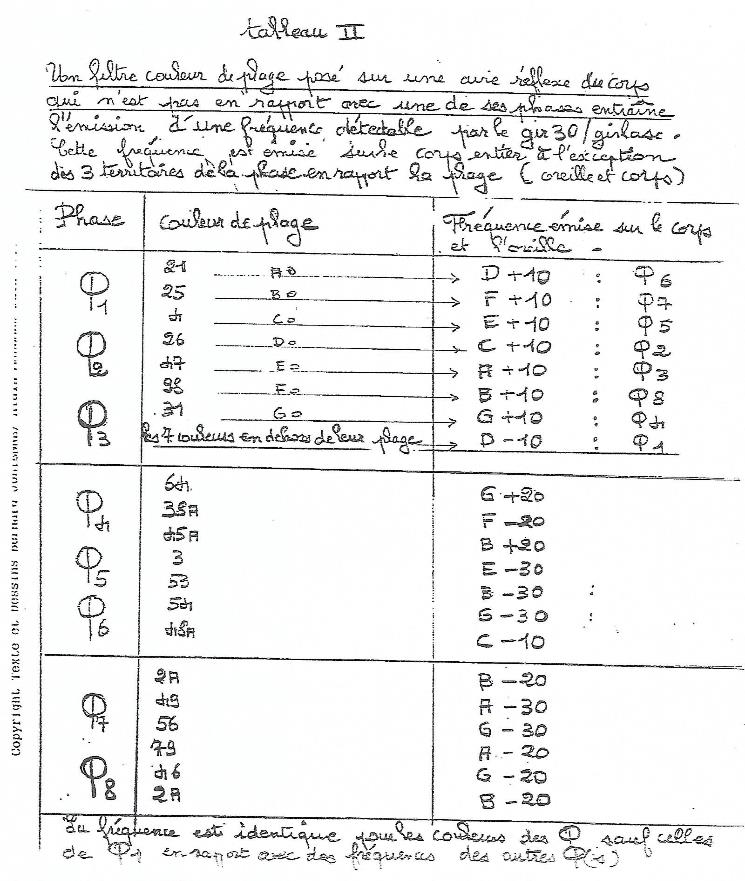 tableau II
Un filtre couleur de plage posé sur une aire réflexe du corps
qui n'est pas en rapport avec une de ses phases entraîne
l'émission d'une fréquence détectable par le gir 30/girlase.
Cette fréquence est émise sur le corps entier à l'exception
des 3 territoires de la phase en rapport la plage (oreille et corps)
Phase couleur de plage Fréquence émise sur le corps
et l'oreille -
Φ1 21 A0 → D +10 : Φ6
25 B0 → F +10 : Φ7
4 C0 → E +10 : Φ5
Φ2 26 D0 → C +10 : Φ2
47 E0 → A +10 : Φ3
98 F0 → B +10 : Φ8
Φ3 31 G0 → G +10 : Φ4
les 7 couleurs en dehors de leur plage → D -10 : Φ1
Φ4 64 G +20
38A F -20
45A B +20
Φ5 3 E -30
53 B -30 :
Φ6 54 G -30 :
48A C -10
2A B -20
Φ7 49 A -30
56 G -30
79 A -20
Φ8 46 G -20
2A B -20
La fréquence est identique pour les couleurs des Φ sauf celles
de Φ1 en rapport avec des fréquences des autres Φ(s)
Copyright Texte et Dessins